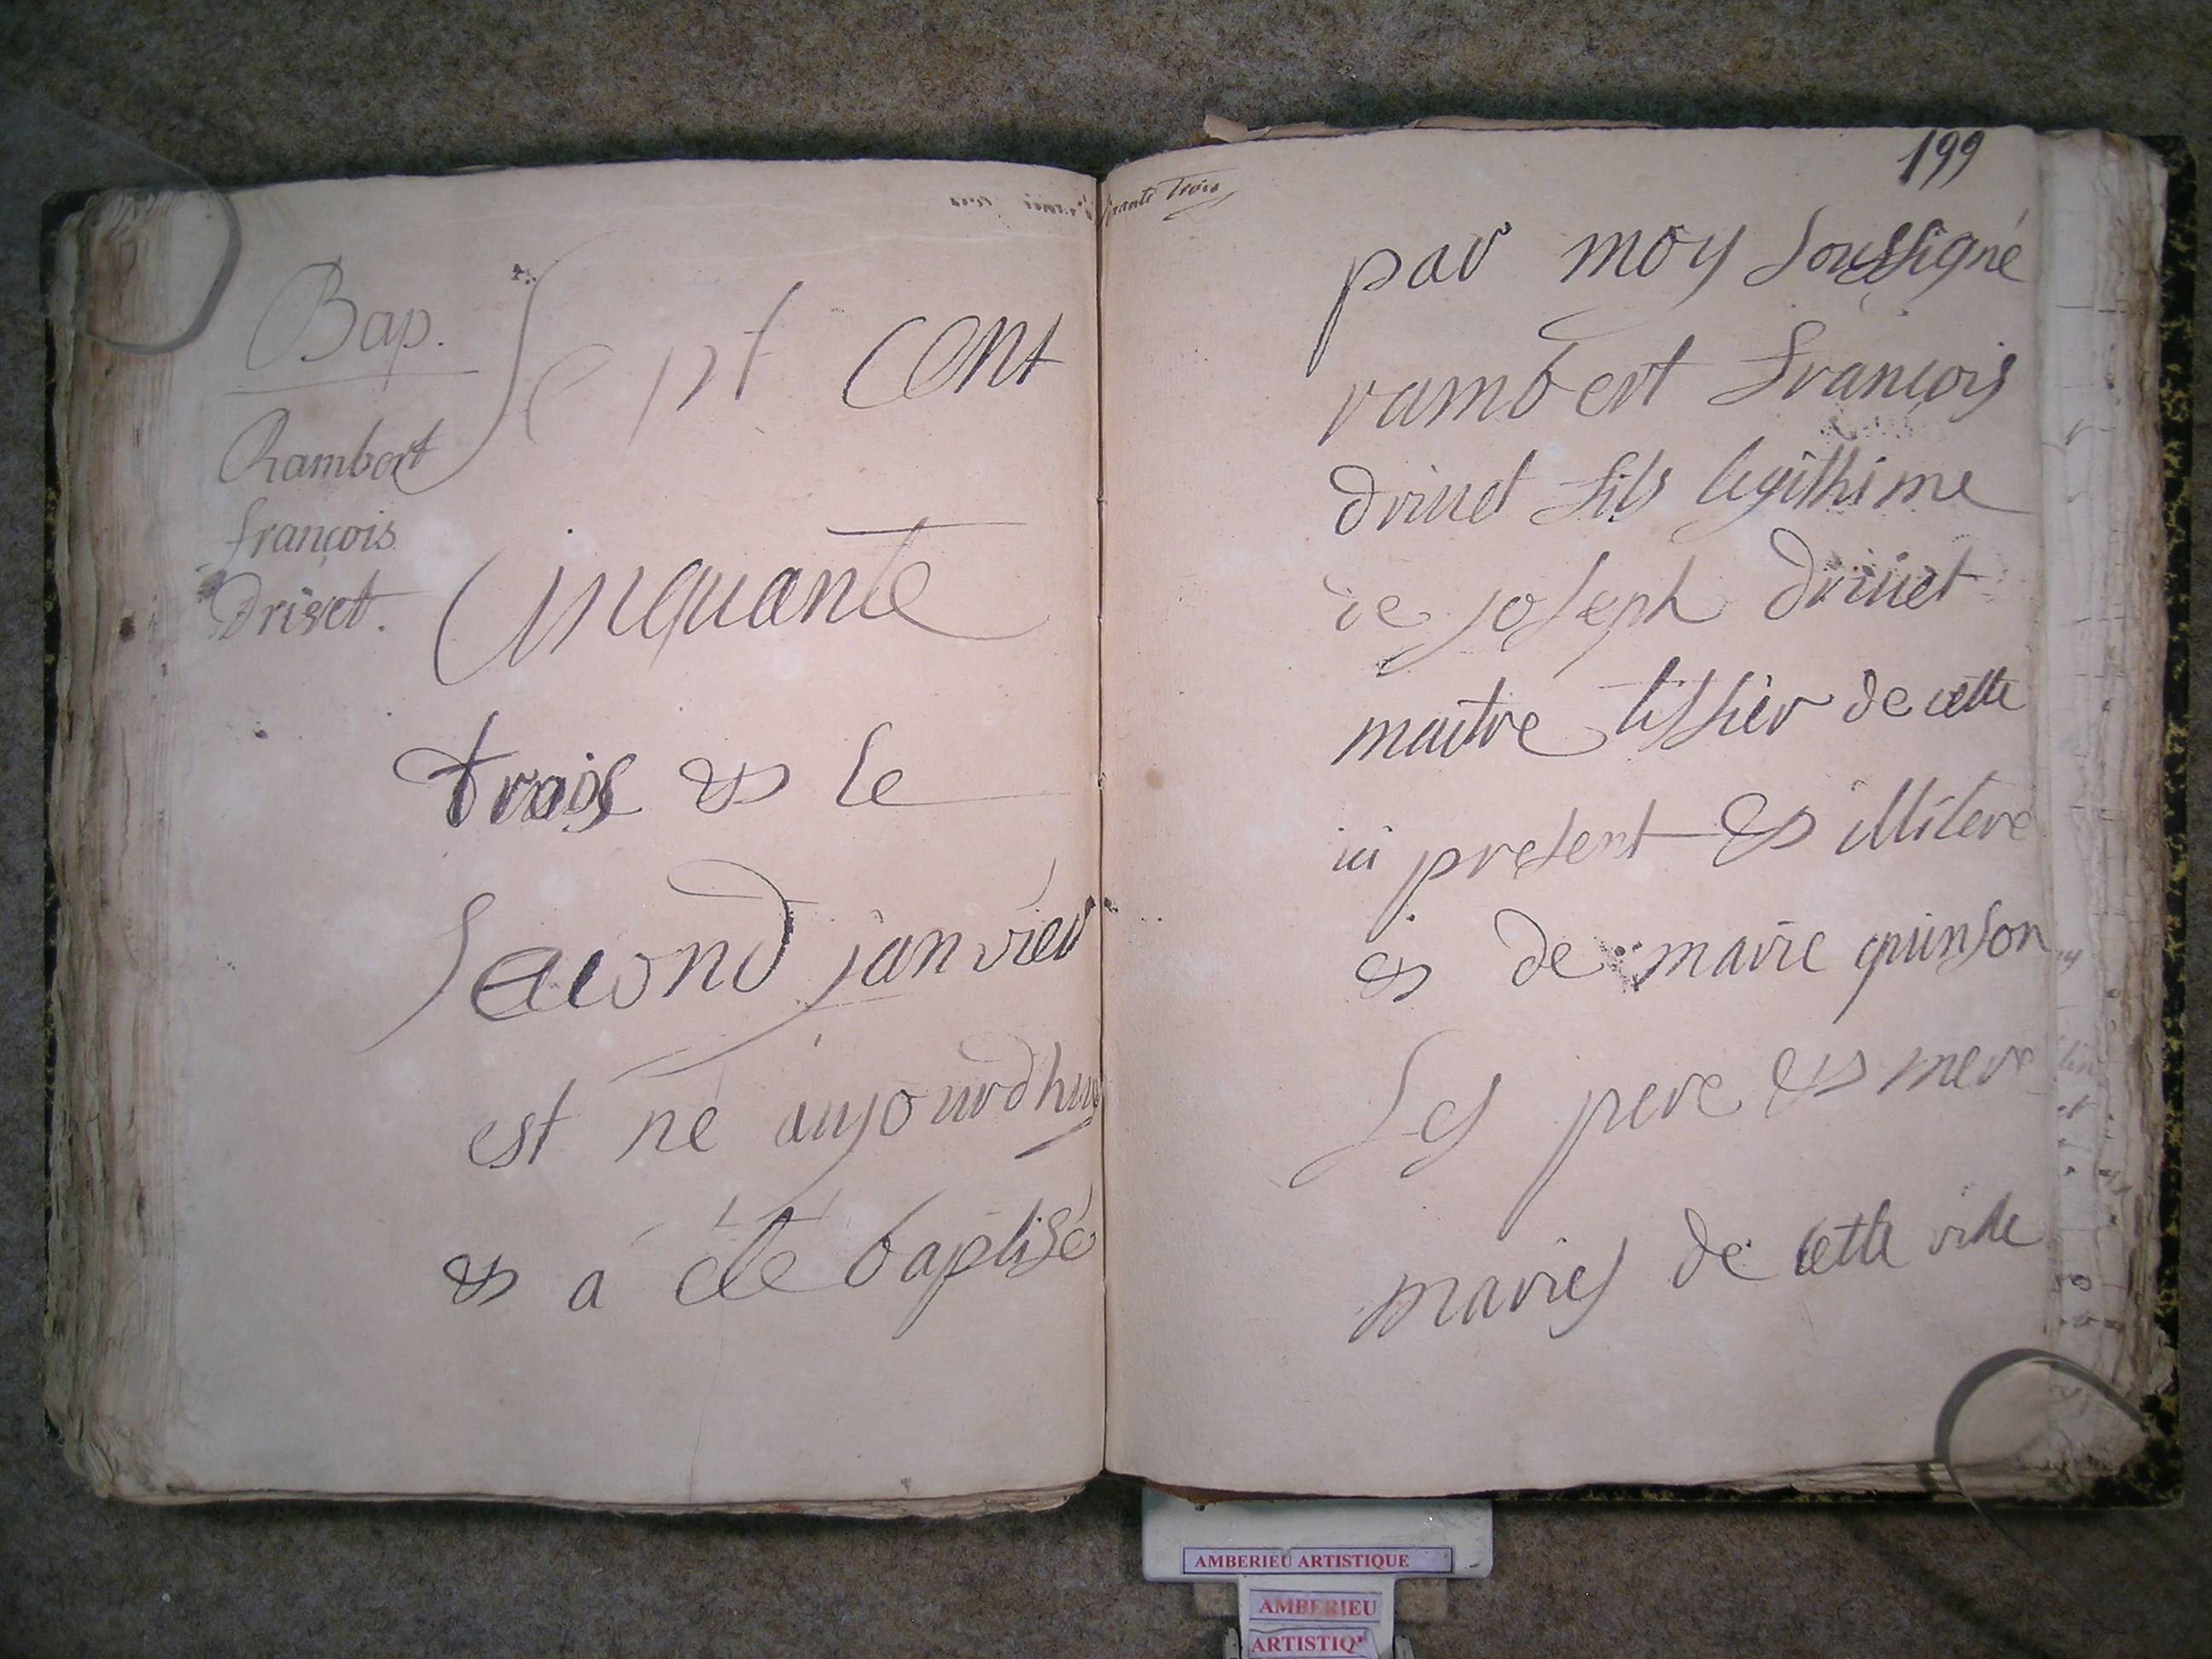 Bap.
Rambert
françois
Drivet.
Sept cent
Cinquante
trois & le
second janvier
est né aujourdhuy
& a été baptisé
rante trois
199
par moy soussigné
rambert françois
drivet fils legithime
de joseph drivet
maitre tissier de cette
ici present & illiteré
& de marie quinson
ses pere & mere
mariés de cette ville
AMBERIEU ARTISTIQUE
AMBERIEU
ARTISTIQ